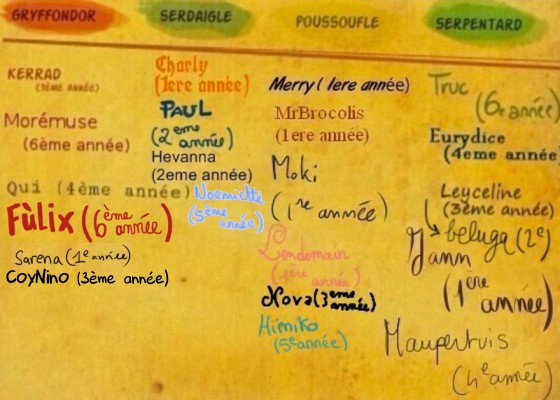 GRYFFONDOR
KERRAD
(3ÈME ANNÉE)
Morémuse
(6ème année)
Qui (4ème année)
Fùlix (6ème année)
Sarena (1e année)
CoyNino (3ème année)
SERDAIGLE
Charly
(1ere année)
PAUL
(2eme année)
Hevanna
(2eme année)
Noemiette
(5ème année)
POUSSOUFLE
Merry (1ere année)
MrBrocolis
(1ere année)
Moki
(1re année)
Lendemain
(1ère année)
Nova (3eme année)
Himiko
(5e année)
SERPENTARD
Truc
(6e année)
Eurydice
(4eme année)
Leyceline
(3ème année)
beluga (2e)
Yann
(1ère année)
Maupertuis
(4e année)